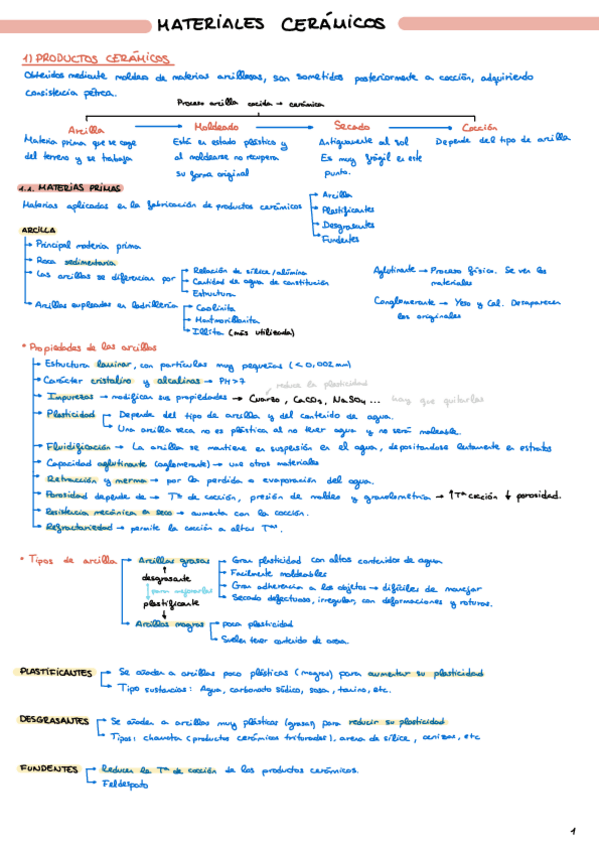 MATERIALES CERÁMICOS
1) PRODUCTOS CERÁMICOS
Obtenidos mediante moldeo de materias arcillosas, son sometidos posteriormente a cocción, adquiriendo
consistencia pétrea.
Proceso arcilla cocida → cerámica
Arcilla → Moldeado → Secado → Cocción
Materia prima que se coge
del terreno y se trabaja
Está en estado plástico y
al moldearse no recupera
su forma original
Antiguamente al sol
Es muy frágil en este
punto.
Depende del tipo de arcilla
1.1. MATERIAS PRIMAS
Materias aplicadas en la fabricación de productos cerámicos
Arcilla
Plastificantes
Desgrasantes
Fundentes
ARCILLA
Principal materia prima
Roca sedimentaria
Las arcillas se diferencian por
Relación de sílice/alúmina
Cantidad de agua de constitución
Estructura
Arcillas empleadas en ladrillería
Caolinita
Montmorillonita
Illita (más utilizada)
Aglutinante → Proceso físico. Se ven los
materiales
Conglomerante → Yeso y Cal. Desaparecen
los originales
* Propiedades de las arcillas
Estructura laminar, con partículas muy pequeñas (<0,002mm)
Carácter cristalino y alcalinas → PH>7
reduce la plasticidad
Impurezas → modifican sus propiedades → Cuarzo, CaCO3, NaSO4 ... hay que quitarlas
Plasticidad
Depende del tipo de arcilla y del contenido de agua.
Una arcilla seca no es plástica al no tener agua y no será moleable.
Fluidificación → La arcilla se mantiene en suspensión en el agua, depositandose lentamente en estratos
Capacidad aglutinante (aglomerante) → une otros materiales
Retracción y merma → por la perdida o evaporación del agua.
Porosidad depende de → Tª de cocción, presión de moldeo y granulometría → ↑Tª cocción ↓ porosidad.
Resistencia mecánica en seco → aumenta con la cocción.
Refractariedad → permite la cocción a altas Tªs.
* Tipos de arcilla
Arcillas grasas
Gran plasticidad con altos contenidos de agua
Facilmente moldeables
Gran adherencia a los objetos → difíciles de manejar
Secado defectuoso, irregular, con deformaciones y roturas.
desgrasante
para mejorarlas
plastificante
Arcillas magras
poca plasticidad
Suelen tener contenido de arena.
PLASTIFICANTES
Se añaden a arcillas poco plásticas (magras) para aumentar su plasticidad
Tipo sustancias: Agua, carbonato sódico, sosa, tanino, etc.
DESGRASANTES
Se añaden a arcillas muy plásticas (grasas) para reducir su plasticidad
Tipos: chamota (productos cerámicos triturados), arena de sílice, cenizas, etc
FUNDENTES
Reducen la Tª de cocción de los productos cerámicos.
Feldespato
1